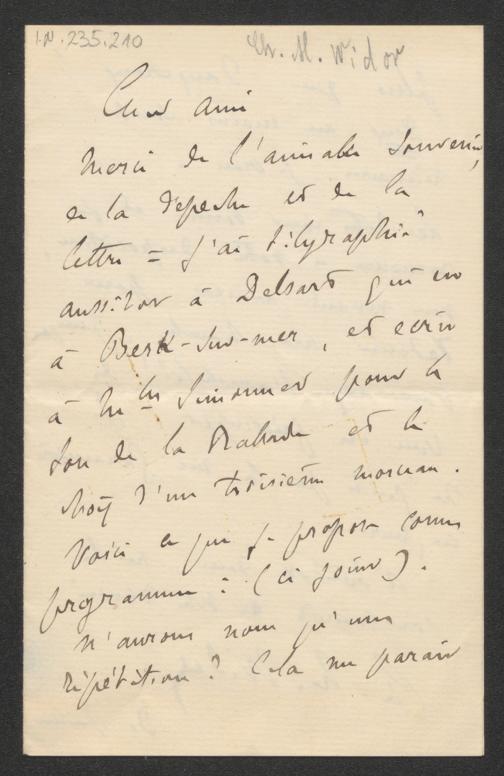 I.N. 235.210
Ch. M. Widor
Cher ami
Merci de l'aimable souvenir,
de la dépêche et de la
lettre = j'ai télégraphié
aussitôt à Delsart qui est
à Berk-sur-mer, et écrit
à Mlle pour le
de la et le
choix d'un troisième morceau.
Voici ce que je propose comme
programme : (ci joint).
N'aurons nous qu'une
répétition ? Cela me parait